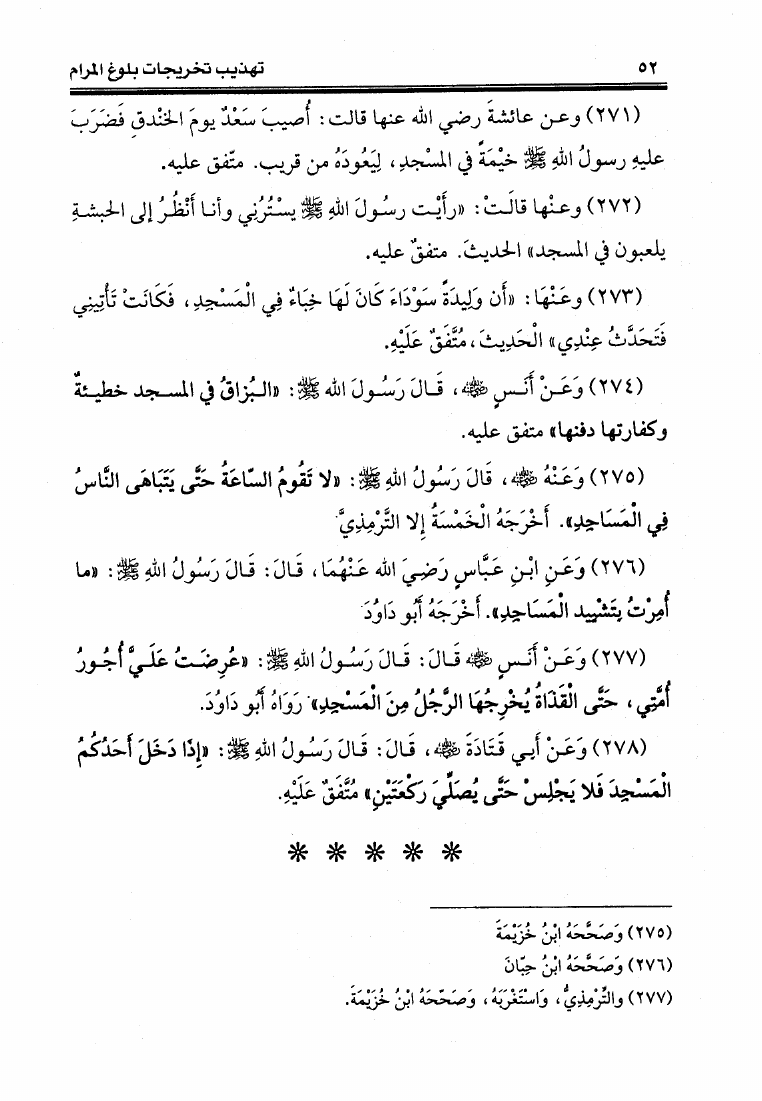 ٥٢ تهذيب تخريجات بلوغ المرام
(٢٧١) وعن عائشةَ رضي الله عنها قالت: أُصيبَ سَعْدٌ يومَ الخندقِ فضَرَبَ
عليهِ رسولُ اللهِ ﷺ خيْمَةً في المسْجدِ، لِيَعُودَهُ من قريب. متّفق عليه.
(٢٧٢) وعنْها قالَتْ: «رأيْت رسولَ اللهِ ﷺ يسْتُرُني وأنا أنْظُرُ إلى الحبشةِ
يلعبون في المسجد» الحديثَ. متفقٌ عليه.
(٢٧٣) وعَنْهَا: «أن وَلِيدَةً سَوْدَاءَ كَانَ لَهَا خِبَاءٌ فِي الْمَسْجِدِ، فَكَانَتْ تَأْتِينِي
فَتَحَدَّثُ عِنْدِي» الْحَدِيثَ، مُتَّفَقٌ عَلَيْهِ.
(٢٧٤) وَعَنْ أَنَسٍ ﷺ، قَالَ رَسُولَ الله ﷺ: «البُزاقُ في المسجد خطيئةٌ
وكفارتها دفنها» متفق عليه.
(٢٧٥) وَعَنْهُ ﷺ، قَالَ رَسُولُ اللهِ ﷺ: «لا تَقُومُ السّاعَةُ حَتَّى يَتَبَاهَى النَّاسُ
فِي الْمَسَاجِدِ». أَخْرَجَهُ الْخَمْسَةُ إلا التِّرْمِذِيَّ
(٢٧٦) وَعَنِ ابْنِ عَبَّاسٍ رَضِيَ الله عَنْهُمَا، قَالَ: قَالَ رَسُولُ اللهِ ﷺ: «ما
أُمِرْتُ بِتَشْيِيد الْمَسَاجِدِ». أَخْرَجَهُ أَبُو دَاوُدَ
(٢٧٧) وَعَنْ أَنَسٍ ﷺ قَالَ: قَالَ رَسُولُ اللهِ ﷺ: «عُرِضَتْ عَلَيَّ أُجُورُ
أُمَّتِي، حَتَّى الْقَذَاةُ يُخْرِجُهَا الرَّجُلُ مِنَ الْمَسْجِدِ» رَوَاهُ أَبُو دَاوُدَ.
(٢٧٨) وَعَنْ أَبِي قَتَادَةَ ﷺ، قَالَ: قَالَ رَسُولُ اللهِ ﷺ: «إِذَا دَخَلَ أَحَدُكُمُ
الْمَسْجِدَ فَلا يَجْلِسْ حَتَّى يُصَلِّيَ رَكْعَتَيْنِ» مُتَّفَقٌ عَلَيْهِ.
* * * * *
(٢٧٥) وَصَحَّحَهُ ابْنُ خُزَيْمَةَ
(٢٧٦) وَصَحَّحَهُ ابْنُ حِبَّانَ
(٢٧٧) والتِّرْمِذِيُّ، وَاسْتَغْرَبَهُ، وَصَحّحَهُ ابْنُ خُزَيْمَةَ.